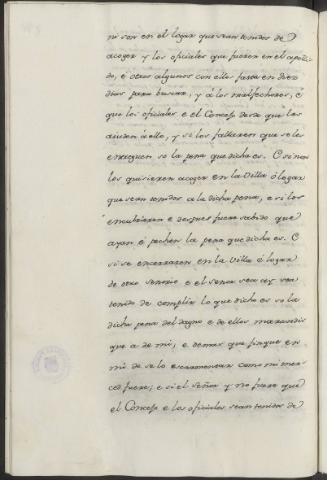 ni son en el logar que sean tenidos de
acoger y los oficiales que fueren en el apelli
do, é otros algunos con ellos fasta en diez
dias para buscar, y á los malfechores, é
que los oficiales é el Concejo dese que los
aiuden á ello, y si los fallaren que se le
entreguen so la pena que dicha es. E si non
los quisieren acoger en la Villa ó logar
que sean tenidos á la dicha pena, e si los
encubrieren e despues fuere sabido que
ayan é pechen la pena que dicha es. E
si se encerraren en la Villa ó logar
de otro Señorio e el Señor sea
tenido de complir lo que dicho es so la
dicha pena del doblo e de ellos maravedis
que a de mi; e demas que finque en
mi de se lo escarmentar como mi mer
ced fuere; e si el Señor y no fuere que
el Concejo e los oficiales sean tenidos de